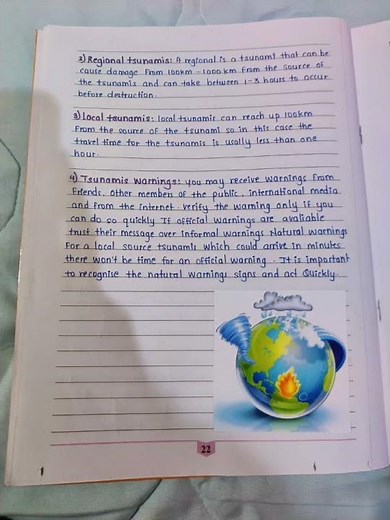 2) Regional tsunamis: A regional is a tsunami that can be
cause damage from 100km - 1000 km from the source of
the tsunamis and can take between 1-3 hours to occur
before destruction.
3) local tsunamis: local tsunamis can reach up 100km
from the source of the tsunami so in this case the
travel time for the tsunamis is usally less than one
hour.
4) Tsunamis Warnings: you may receive warnings from
Friends, other members of the public, international media
and from the internet. verify the warning only if you
can do so quickly If official warnings are avaliable
trust their message over informal warnings Natural warnings
For a local source tsunamis which could arrive in minutes
there won't be time for an official warning. It is important
to recognise the natural warnings signs and act Quickly.
22